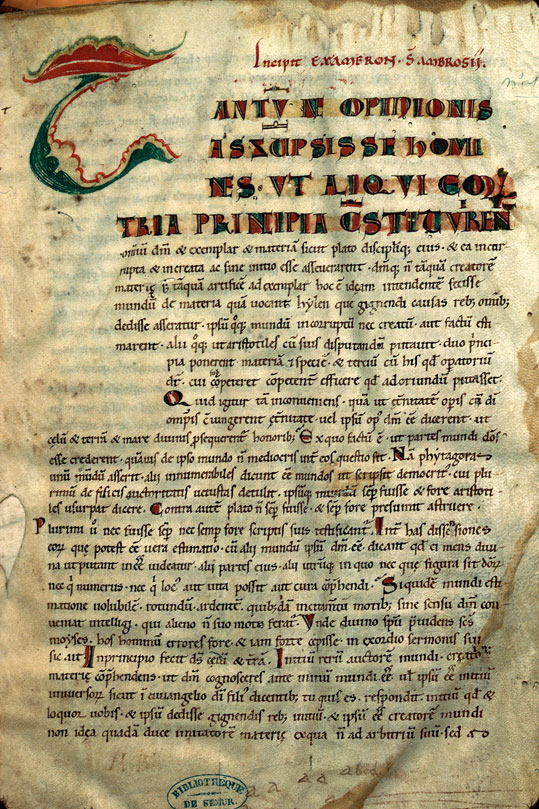 Incipit EXAMERON · S AMBROSII.
TANTV NE OPINIONIS
ASSVPSISSE HOMI
NES · VT ALIQVI
TRIA PRINIPIA CSTITVVREN
omniū dm̄ & exemplar & materiā sicut plato discipliq; eius · & ea incor
rupta & increata ac sine initio esse asseuerarent · dm̄q; n̄ tāquā creatorē
materię s; tāquā artificē ad exemplar hoc ē ideam intendentē fecisse
mundū de materia quā uocant hylen que gignendi causas reb; omīb;
dedisse asseratur · ipsū q̄q; mundū incorruptū nec creatū · aut factū esti
marent · alii q̄q; ut aristotiles cū suis disputandū putauit · duo p̄nci
pia ponerent materiā & speciē · & terciū cū his qd̄ operatoriū
dr̄ · cui cōpeteret efficere qd̄ adoriundū putasset
Quid igitur tā inconueniens · quā ut ęt̄nitatē opis cū di
omp̄is cīungerent ęt̄nitate · uel ipsū op̄ dm̄ ēē dicerent · ut
cęlū & terrā & mare diuinis p̄sequerent̄ honorib; Ex quo factū ē · ut partes mundi dōs
esse crederent · quāuis de ipso mundo n̄ mediocris int̄ eos questio sit · Nā phytagoras
unū mūdū asserit · alii innumerabiles dicunt ēē mundos ut scripsit democrit̄ · cui plu
rimū de fisicis auctoritatis uetustas detulit · ipsūq; mundū semp̄ fuisse & fore aristoti
les usurpat dicere · Contra autē plato n̄ semp̄ fuisse · & semp̄ fore presumit astruere ·
Plurimi ū nec fuisse semp̄ nec semp̄ fore scriptis suis testificant̄ · Int̄ has dissensiones
eorum que potest ēē uera estimatio · cū alii mundū ipsū dm̄ ēē dicant qd̄ ei mens diui
na ut putant inēē uideatur · alii partes eius · alii utrūq; in quo nec que figura sit dōr̄
nec q̄ numerus · nec q̄ loc̄ aut uita possit aut cura cōp̄hendi · Siquidē mundi esti
matione uolubilē · rotundū · ardentē · quib; dā incitatū motib; sine sensu dm̄ con
ueniat intelligi · qui alieno n̄ suo motu ferat̄ · Vnde diuino sp̄u p̄uidens sc̄s
moyses · hos hominū errores fore · & iam forte cepisse · in exordio sermonis sui
sic ait In principio fecit ds̄ cęlū & t̄rā · Initiū rerū auctorē mundi · creationē
materię cōp̄hendens · ut dm̄ cognosceres ante initiū mundi ēē · uel ipsū ēē initiū
uniuersorū sicut ī euuangelio dī fili' dicentib; tu quis es · respondit · initiū qd̄ &
loquor uobis · & ipsū dedisse gignendis reb; initiū · & ipsū ēē creatorē mundi
non idea quadā duce imitatorē materię ex qua n̄ ad arbitriū suū · sed
BIBLIOTHEQUE
DE SEMUR